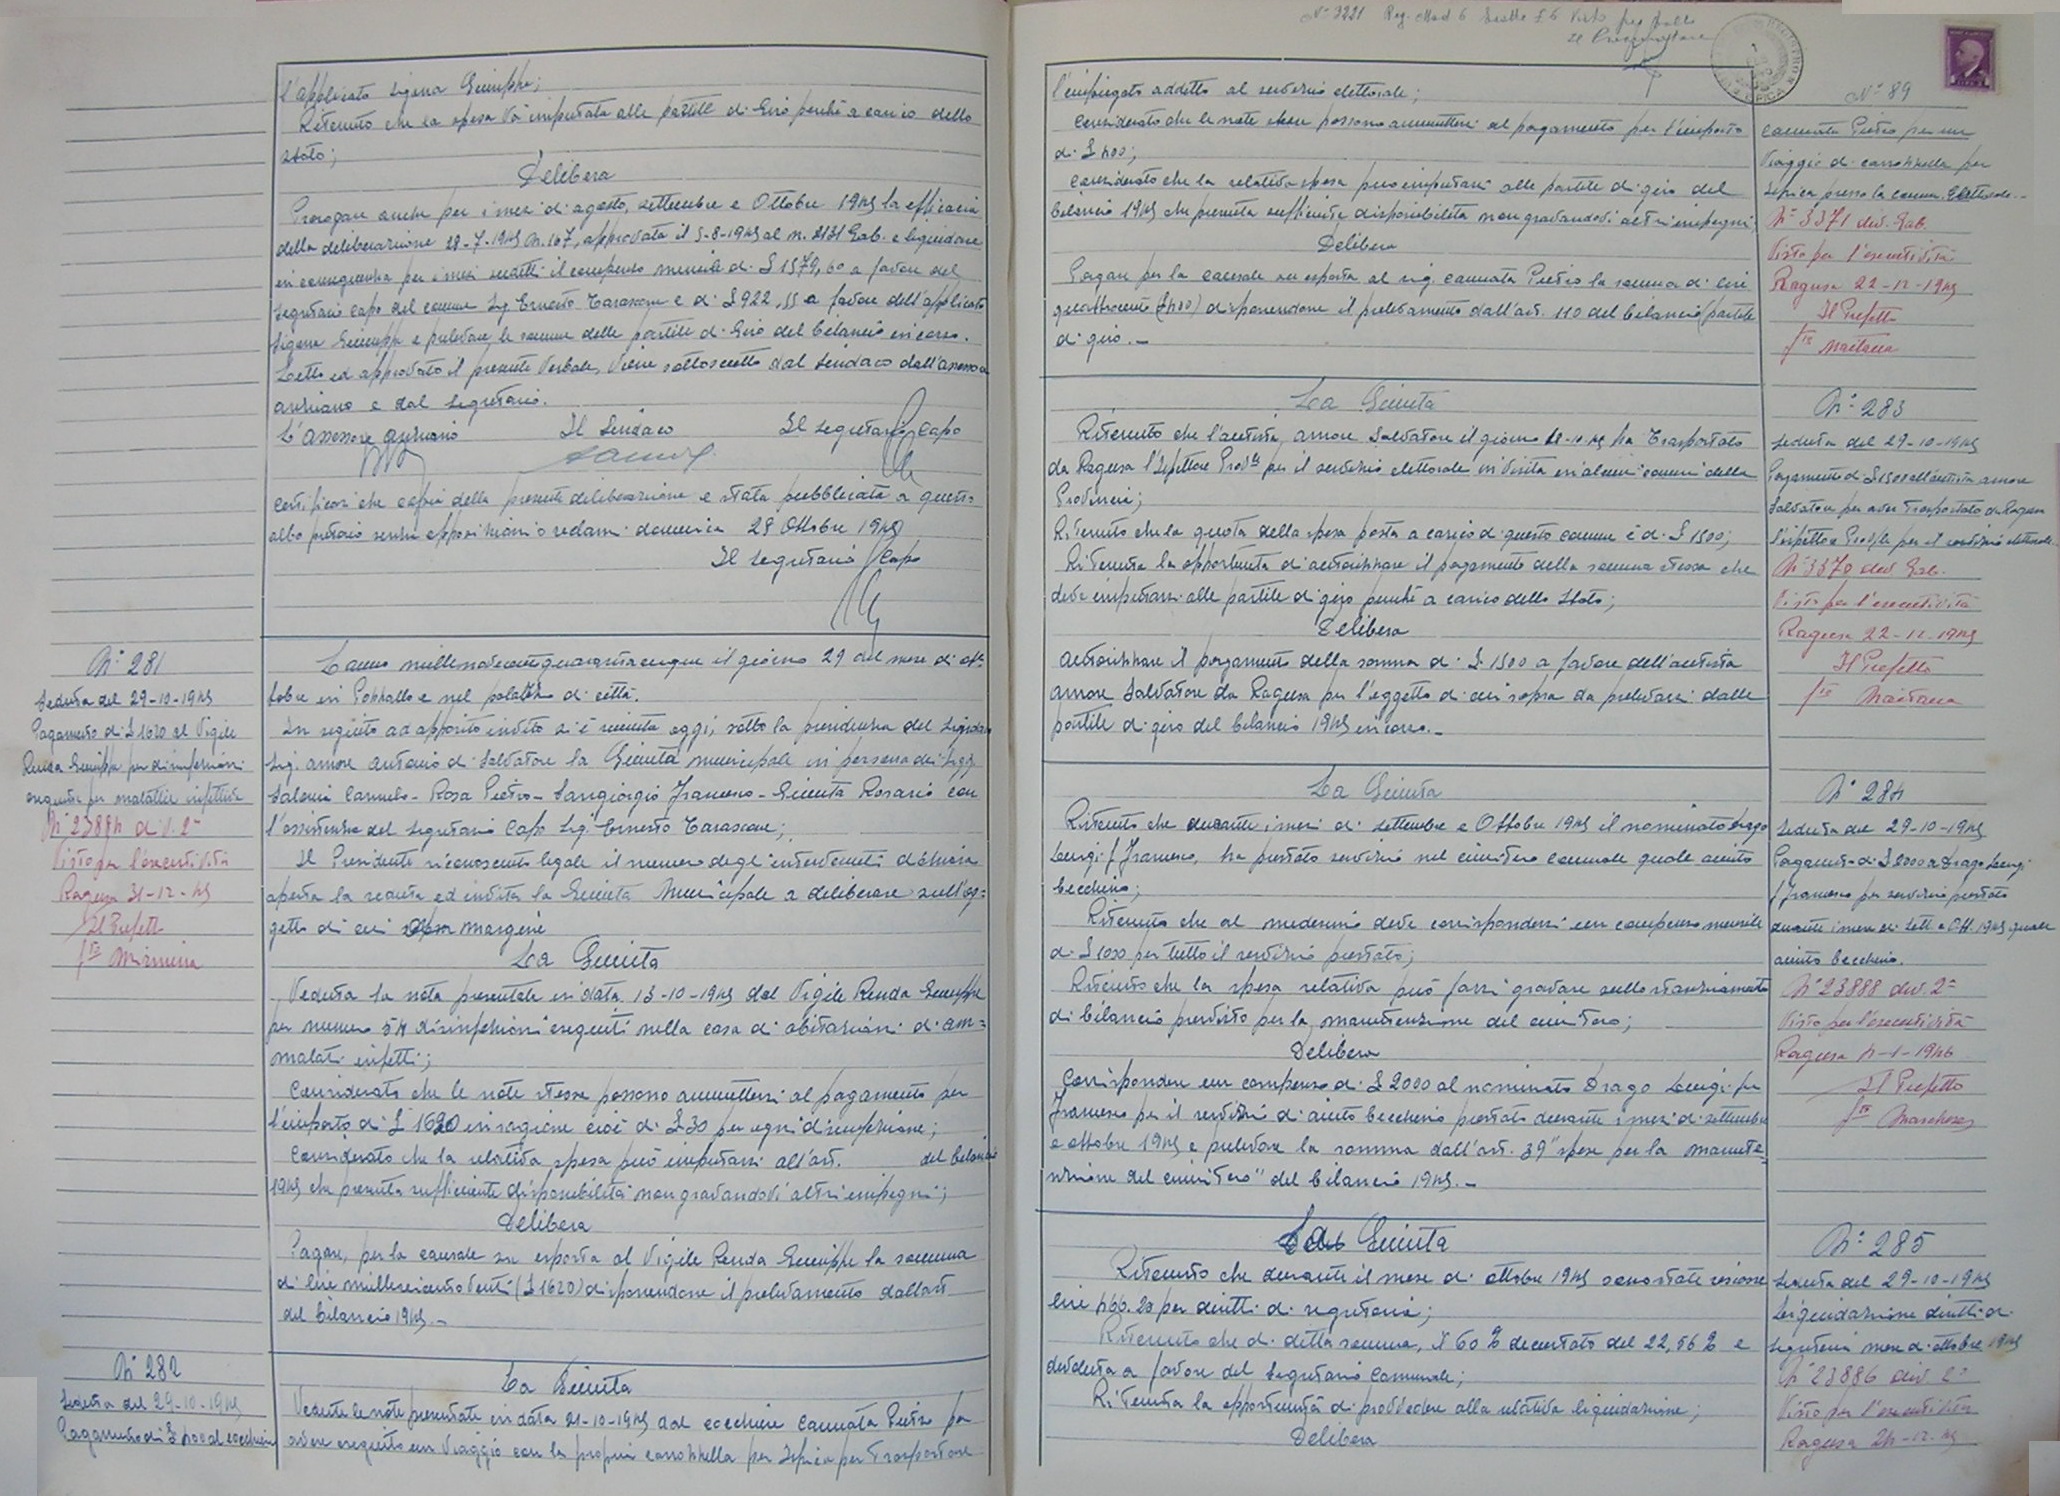 l'applicato Sigona Giuseppe;
Ritenuto che la spesa va imputata alle partite di Giro perché a carico dello
Stato;
Delibera
Prorogare anche per i mesi di agosto, settembre e Ottobre 1945 la efficacia
della deliberazione 28-7-1945 N. 167, approvata il 5-8-1945 al n. 2131 Gab. e liquidare
in conseguenza per i mesi suddetti il compenso mensile di £ 1579,60 a favore del
Segretario capo del comune Sig. Ernesto Tarascone e di £ 922,55 a favore dell'applicato
Sigona Giuseppe e prelevare le somme delle partite di Giro del bilancio in corso.
Letto ed approvato il presente Verbale, viene sottoscritto dal Sindaco dall'assessore
anziano e dal Segretario.
L'Assessore anziano Il Sindaco Il Segretario Capo
Certifico che copia della presente deliberazione è stata pubblicata a questo
albo pretorio senza opposizioni o reclami domenica 28 Ottobre 1945
Il Segretario Capo
N. 281
Seduta del 29-10-1945
Pagamento di £ 1620 al Vigile
Renda Giuseppe per disinfezioni
eseguite per malattie infettive
N. 23884 div. 2ª
Visto per l'esecutività
Ragusa 31-12-45
Il Prefetto
L'anno millenovecentoquarantacinque il giorno 29 del mese di ot=
tobre in Pozzallo e nel palazzo di città.
In seguito ad apposito invito si è riunita oggi, sotto la presidenza del Sindaco
Sig. Amore Antonio di Salvatore la Giunta municipale in persona dei Sigg.
Salemi Carmelo - Rosa Pietro - Sangiorgio Francesco - Giunta Rosario con
l'assistenza del Segretario Capo Sig. Ernesto Tarascone;
Il Presidente riconosciuto legale il numero degl'intervenuti dichiara
aperta la seduta ed invita la Giunta Municipale a deliberare sull'og=
getto di cui margine
La Giunta
Veduta la nota presentata in data 13-10-1945 dal Vigile Renda Giuseppe
per numero 54 disinfezioni eseguiti nella casa di abitazioni di am=
malati infetti;
Considerato che le note stesse possono ammettersi al pagamento per
l'importo di £ 1620 in ragione cioè di £ 30 per ogni disinfezione;
Considerato che la relativa spesa può imputarsi all'art. del bilancio
1945 che presenta sufficiente disponibilità non gravandovi altri impegni;
Delibera
Pagare, per la causale su esposta al Vigile Renda Giuseppe la somma
di lire milleseicentoventi (£ 1620) disponendone il prelevamento dall'art.
del bilancio 1945.-
N. 282
Seduta del 29-10-1945
Pagamento di £ 400 al cocchiere
La Giunta
Vedute le note presentate in data 21-10-1945 dal cocchiere Cannata Pietro per
avere eseguito un viaggio con la propria carrozzella per Ispica per trasportare
N. 3221 Reg. Mod 6
l'impiegato addetto al servizio elettorale;
Considerato che le note stesse possono ammettersi al pagamento per l'importo
di £ 400;
Considerato che la relativa spesa può imputarsi alle partite di giro del
bilancio 1945 che presenta sufficiente disponibilità non gravandovi altri impegni;
Delibera
Pagare per la causale su esposta al sig. Cannata Pietro la somma di lire
quattrocento (£ 400) disponendone il prelevamento dall'art. 110 del bilancio (partite
di giro.-
N. 89
Cannata Pietro per un
viaggio di carrozzella per
Ispica presso la comm. Elettorale.-
N. 3371 div. Gab.
Visto per l'esecutività
Ragusa 22-12-1945
Il Prefetto
La Giunta
Ritenuto che l'autista, Amore Salvatore il giorno 18-10-45 ha trasportato
da Ragusa l'Ispettore Prov.le per il servizio elettorale in visita in alcuni comuni della
Provincia;
Ritenuto che la quota della spesa posta a carico di questo comune è di £ 1500;
Ritenuta la opportunità di autorizzare il pagamento della somma stessa che
deve imputarsi alle partite di giro perché a carico dello Stato;
Delibera
Autorizzare il pagamento della somma di £ 1500 a favore dell'autista
Amore Salvatore da Ragusa per l'oggetto di cui sopra da prelevarsi dalle
partite di giro del bilancio 1945 in corso.-
N. 283
Seduta del 29-10-1945
Pagamento di £ 1500 all'autista Amore
Salvatore per aver trasportato da Ragusa
l'ispettore Prov/le per il servizio elettorale.
N. 3370 div. Gab.
Visto per l'esecutività
Ragusa 22-12-1945
Il Prefetto
La Giunta
Ritenuto che durante i mesi di settembre e Ottobre 1945 il nominato Drago
Luigi f. Francesco, ha prestato servizio nel cimitero comunale quale aiuto
becchino;
Ritenuto che al medesimo deve corrispondersi un compenso mensile
di £ 1000 per tutto il servizio prestato;
Ritenuto che la spesa relativa può farsi gravare sullo stanziamento
di bilancio previsto per la manutenzione del cimitero;
Delibera
Corrispondere un compenso di £ 2000 al nominato Drago Luigi fu
Francesco per il servizio di aiuto becchino prestato durante i mesi di settembre
e ottobre 1945 e prelevare la somma dall'art. 39 "spese per la manute=
nzione del cimitero" del bilancio 1945.-
N. 284
Seduta del 29-10-1945
Pagamento di £ 2000 a Drago Luigi
f. Francesco per servizio prestato
durante i mesi di Sett. e Ott. 1945 quale
aiuto becchino.
N. 23888 div. 2ª
Visto per l'esecutività
Ragusa 4-1-1946
Il Prefetto
La Giunta
Ritenuto che durante il mese di ottobre 1945 sono state riscosse
lire 466.20 per diritti di segreteria;
Ritenuto che di detta somma, il 60 % decurtato del 22,56 % è
devoluta a favore del Segretario Comunale;
Ritenuta la opportunità di provvedere alla relativa liquidazione;
Delibera
N. 285
Seduta del 29-10-1945
Liquidazione diritti di
segreteria mese di ottobre 1945
N. 23886 div. 2ª
Visto per l'esecutività
Ragusa 24-12-45